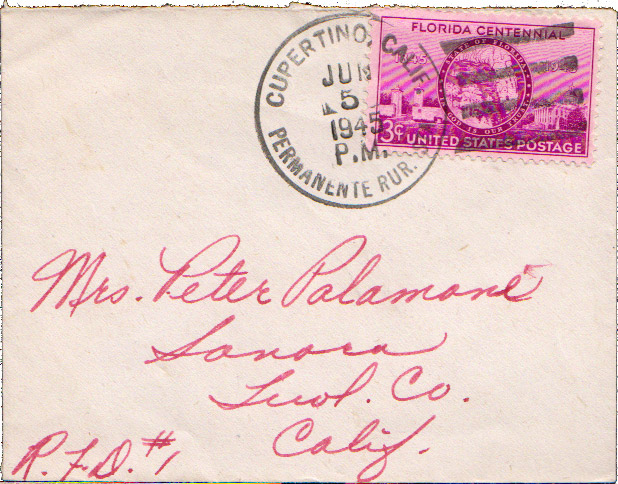 CUPERTINO, CALIF.
JUN
5
1945
P.M.
PERMANENTE RUR.
FLORIDA CENTENNIAL
STATE OF FLORIDA
1845 1945
IN GOD IS OUR TRUST
3¢ UNITED STATES POSTAGE
Mrs. Peter Palamone
Sonora
Tuol. Co.
Calif.
R.F.D. #1